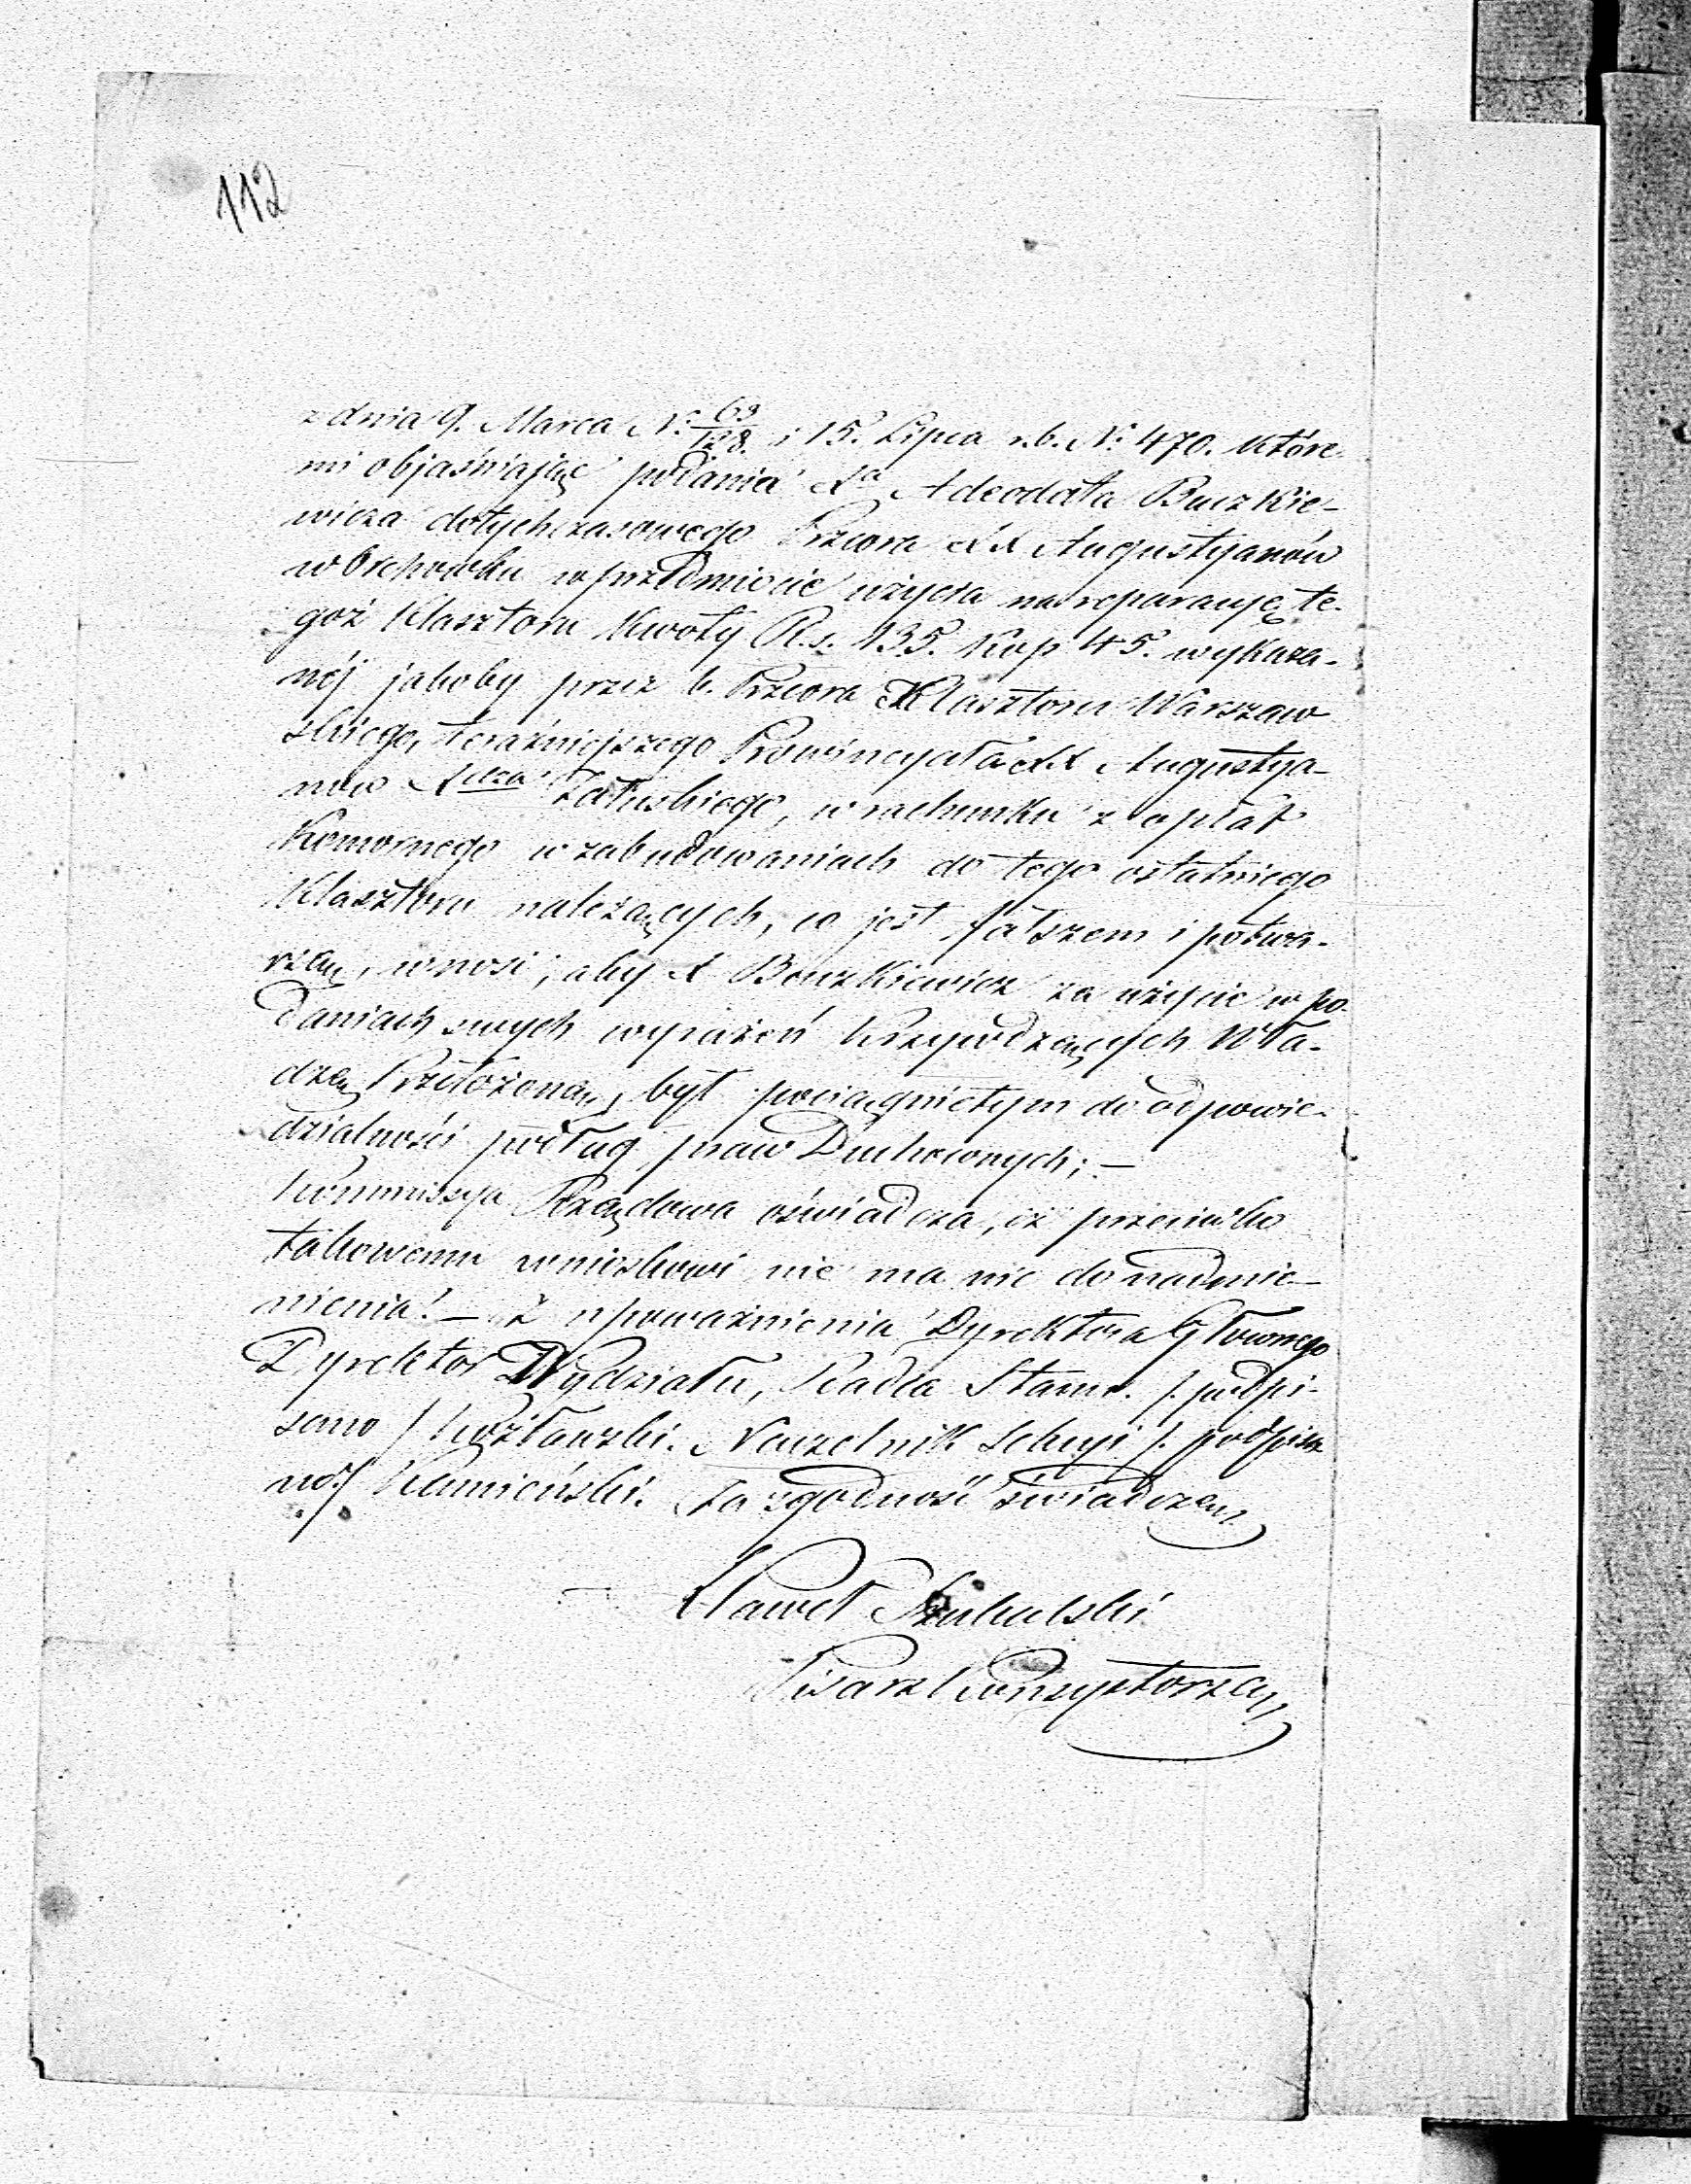 112
z dnia 9. Marca N: 63/128. i 15. Lipca r.b. N: 470. które-
mi objaśniając podania Xa Adeodata Buczkie-
wicza dotychczasowego Przeora XX Augustyanów
w Orchowku w przedmiocie użycia na reparacyę te-
goż Klasztoru kwoty R.s. 135. kop 45. wykaza-
nej jakoby przez b. Przeora Klasztoru Warszaw
skiego, teraźniejszego Prowincyała XX Augustya-
nów Xdza Załuskiego, w rachunku z opłat
Komornego w zabudowaniach do tego ostatniego
Klasztoru należących, co jest fałszem i potwa-
rzą, wnosi, aby X Buczkiewicz za użycie w po-
daniach swych wyrażeń krzywdzących Wła-
dzą Przełożoną, był pociągnietym do odpowie-
dzialności podług praw Duchownych; —
Kommissya Rządowa oświadcza, iż przeciwko
takowemu wnioskowi nie ma nic do nadmie-
nienia! — z upoważnienia Dyrektora Głównego
Dyrektor Wydziału, Radca Stanu. /. podpi-
sano / Kozłowski. Naczelnik Sekcyi /. podpisa
no./ Kamieński. Za zgodność świadczą
Paweł
Pisarz Konsystorza